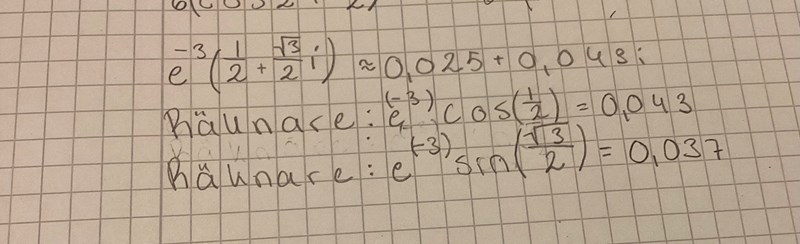 e^-3(1/2 + √3/2 i) ≈ 0,025 + 0,043i
Räunare: e^(-3) cos(1/2) = 0,043
Räunare: e^(-3) sin(√3/2) = 0,037